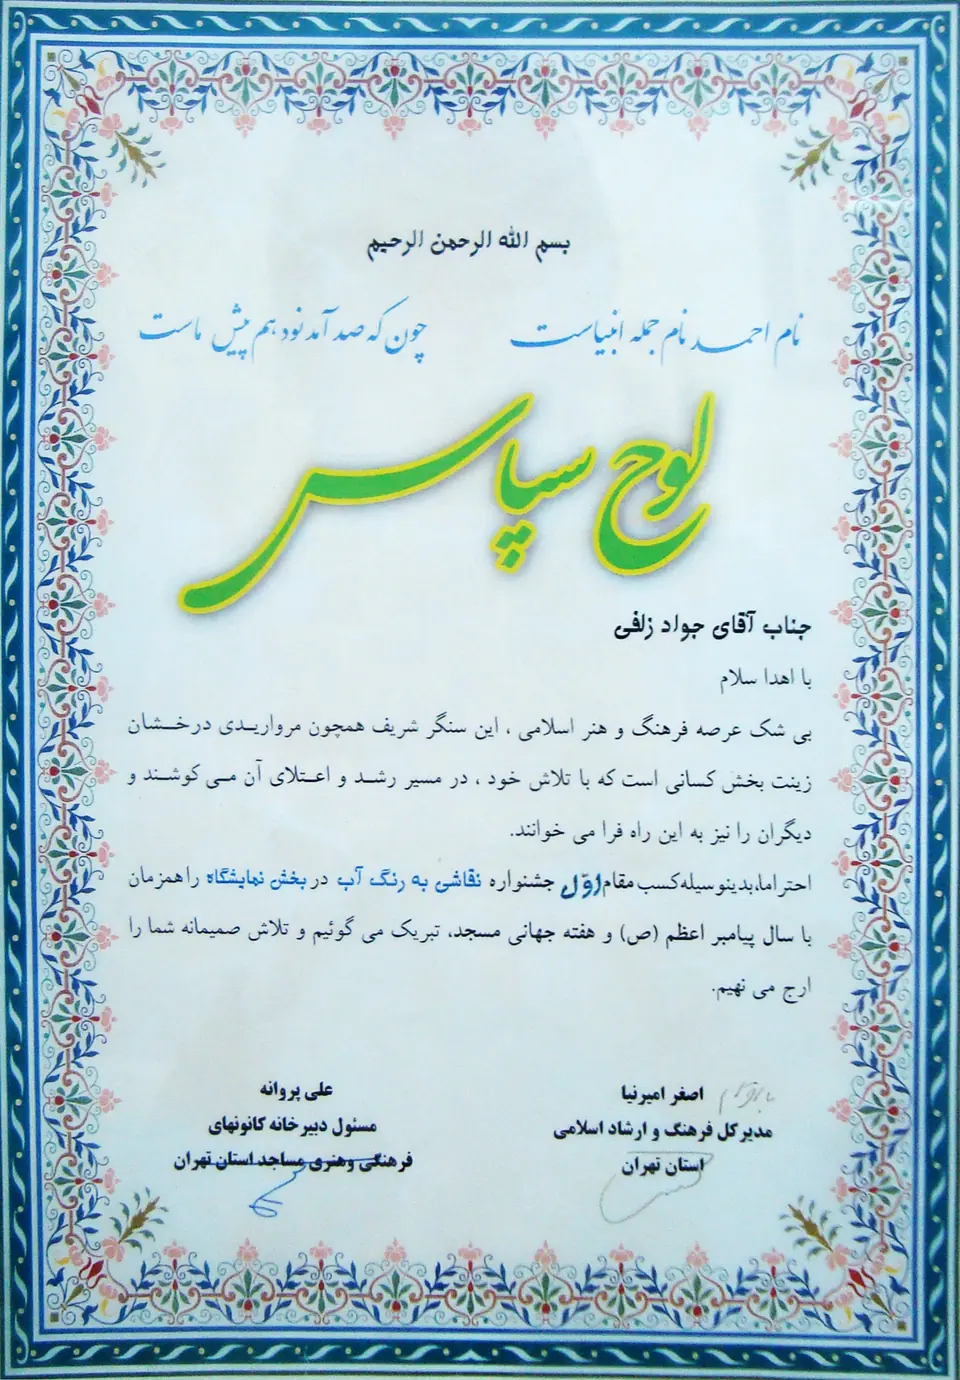 بسم الله الرحمن الرحیم
نام احمد نام جمله انبیاست چون که صد آمد نود هم پیش ماست
لوح سپاس
جناب آقای جواد زلفی
با اهدا سلام
بی شک عرصه فرهنگ و هنر اسلامی ، این سنگر شریف همچون مرواریدی درخشان
زینت بخش کسانی است که با تلاش خود ، در مسیر رشد و اعتلای آن می کوشند و
دیگران را نیز به این راه فرا می خوانند.
احتراما،بدینوسیله کسب مقام اوّل جشنواره نقاشی به رنگ آب در بخش نمایشگاه را همزمان
با سال پیامبر اعظم (ص) و هفته جهانی مسجد، تبریک می گوئیم و تلاش صمیمانه شما را
ارج می نهیم.
اصغر امیرنیا
مدیرکل فرهنگ و ارشاد اسلامی
استان تهران
علی پروانه
مسئول دبیرخانه کانونهای
فرهنگی وهنری مساجد استان تهران